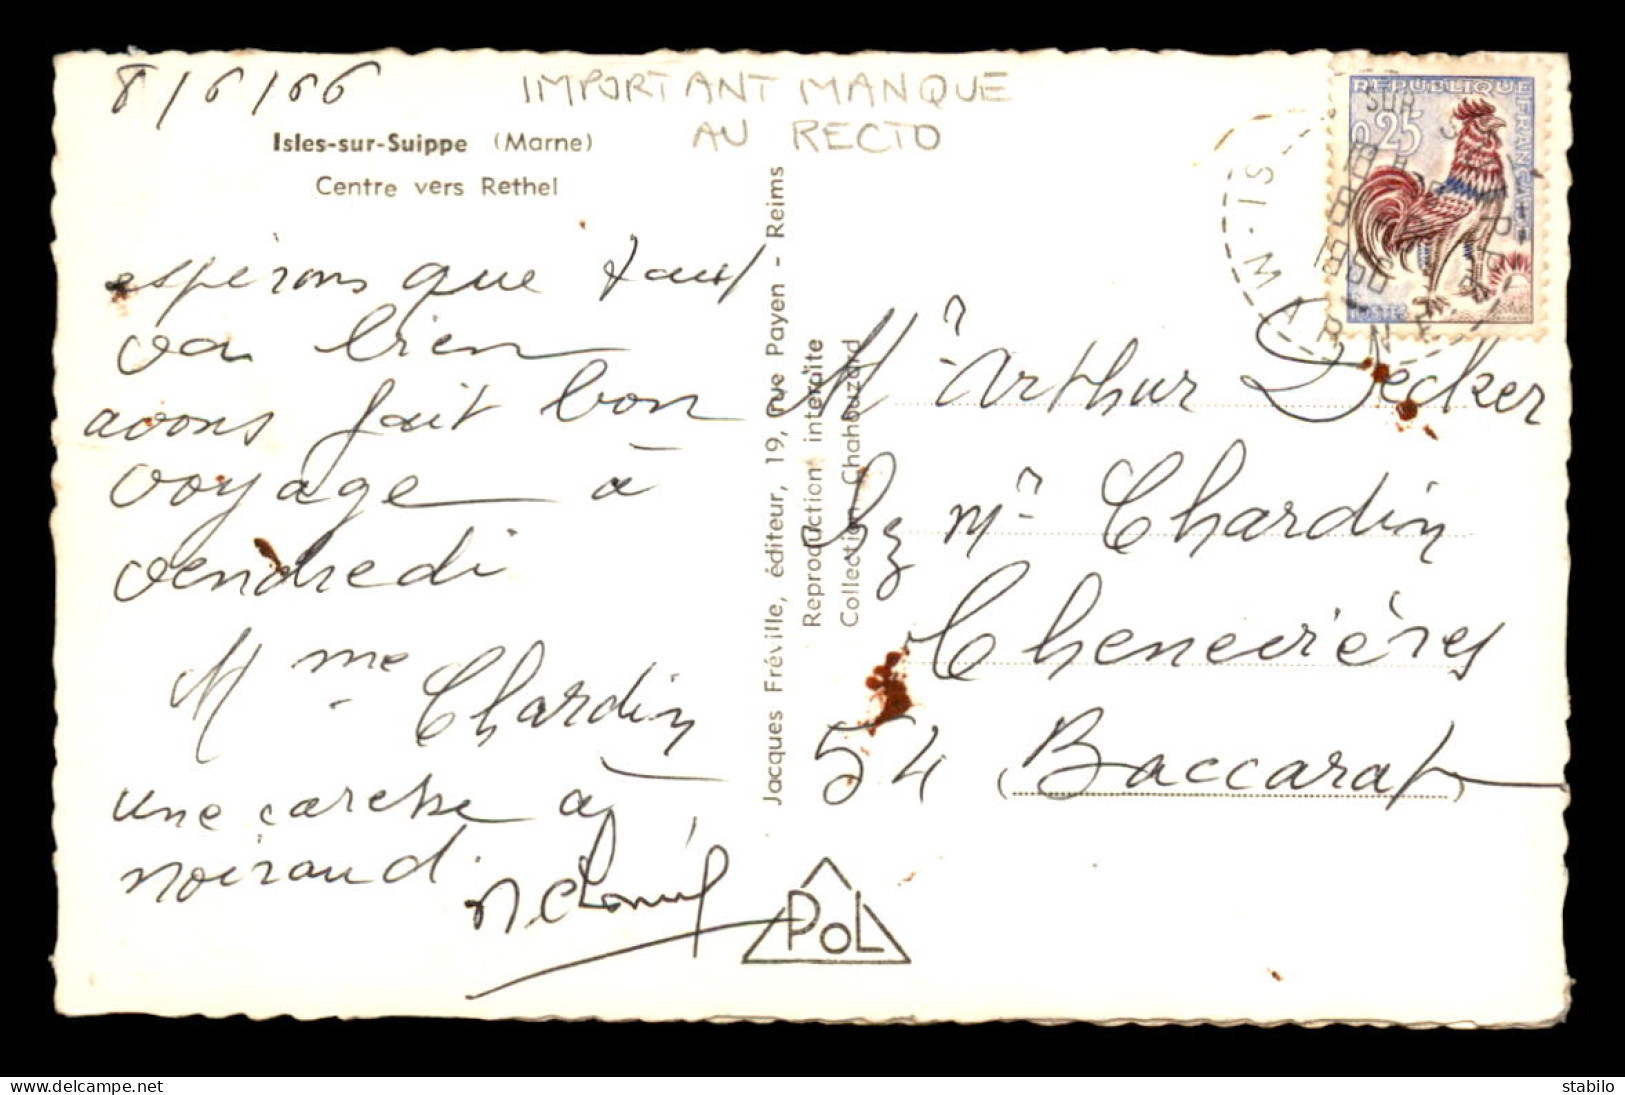 8/6/66
IMPORTANT MANQUE
AU RECTO
Isles-sur-Suippe (Marne)
Centre vers Rethel
espérons que tout
va bien
avons fait bon
voyage à
vendredi
Mme Chardin
une caresse à
Noiraud.
Jacques Fréville, éditeur, 19, rue Payen - Reims
Reproduction interdite
Collection Chahouzard
REPUBLIQUE FRANÇAISE
0,25
POSTES
SUR
MARNE
Mr Arthur Décker
chz Mr Chardin
Chenevières
54 Baccarat
POL
delcampe.net
stabilo